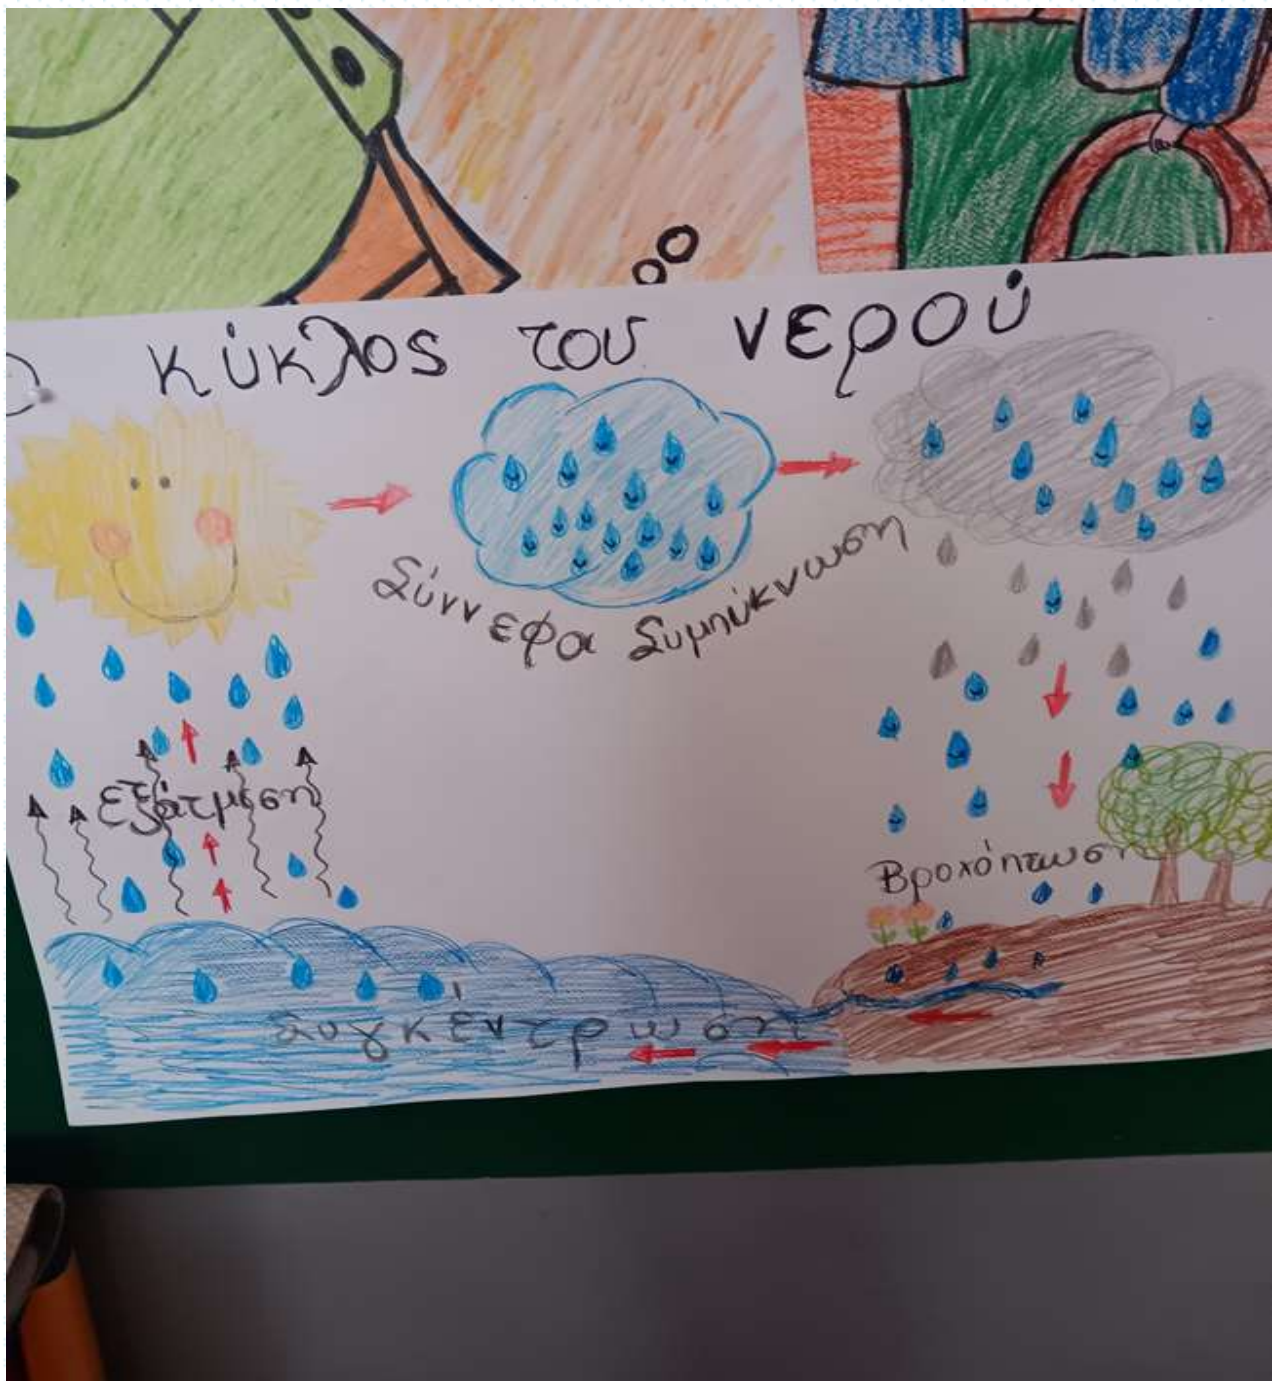 κύκλος του νερού
Σύννεφα Συμπύκνωση
εξάτμιση
Βροχόπτωση
Συγκέντρωση